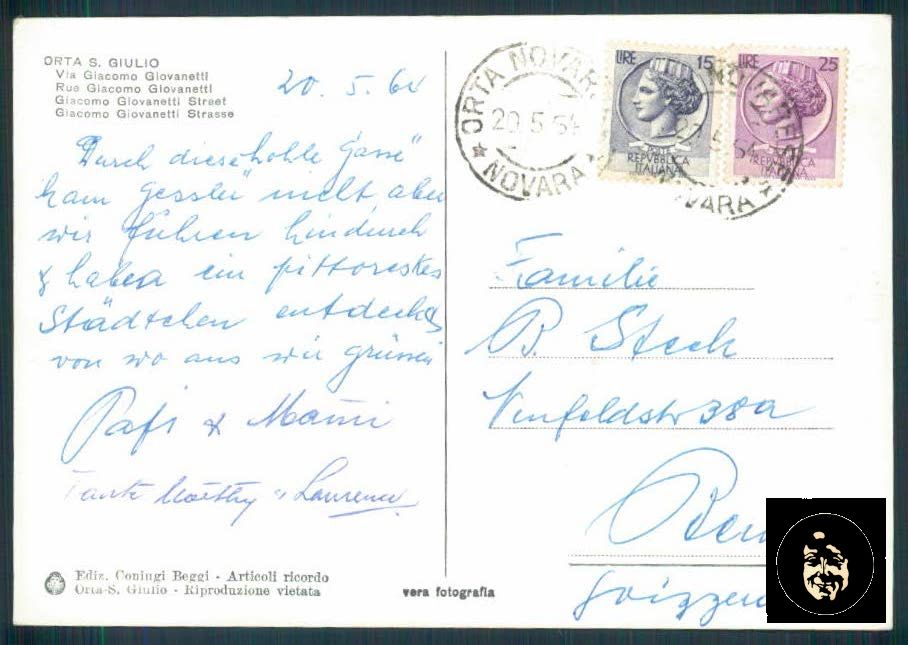 ORTA S. GIULIO
Via Giacomo Giovanetti
Rue Giacomo Giovanetti
Giacomo Giovanetti Street
Giacomo Giovanetti Strasse
20. 5. 64
"Durch diese hohle Gasse"
kam Gessler nicht aber
wir fuhren hindurch
& haben ein pittoreskes
Städtchen entdeckt
von wo aus wir grüssen
Papi & Mami
Tante " Laurence
Ediz. Coniugi Beggi - Articoli ricordo
Orta-S. Giulio - Riproduzione vietata
vera fotografia
ORTA NOVAR
20 5 54
NOVARA
LIRE 15
POSTE
REPVBBLICA
ITALIANA
LIRE 25
REPVBBLICA
ITALIANA
NOVARA
Familie
B. Steck
Neufeldstr 38a
Bern
Svizzera